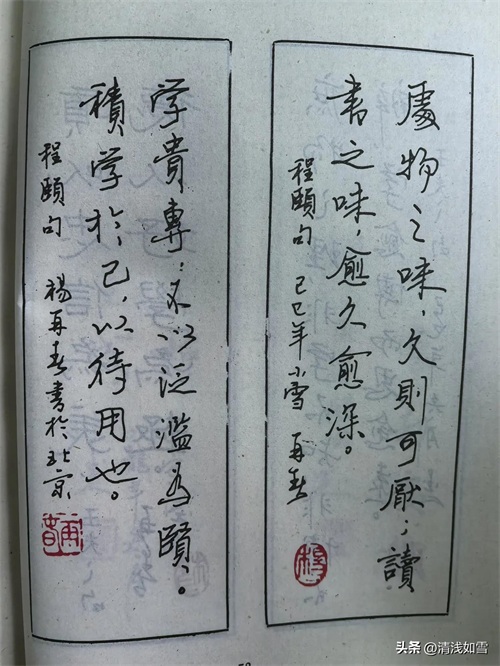 處物之味，久则可厭；讀
書之味，愈久愈深。
程頤句 己巳年小雪 再春
楊
学貴專；不以泛濫為賢。
積学於己，以待用也。
程頤句 楊再春書於北京
再春
头条 @清浅如雪